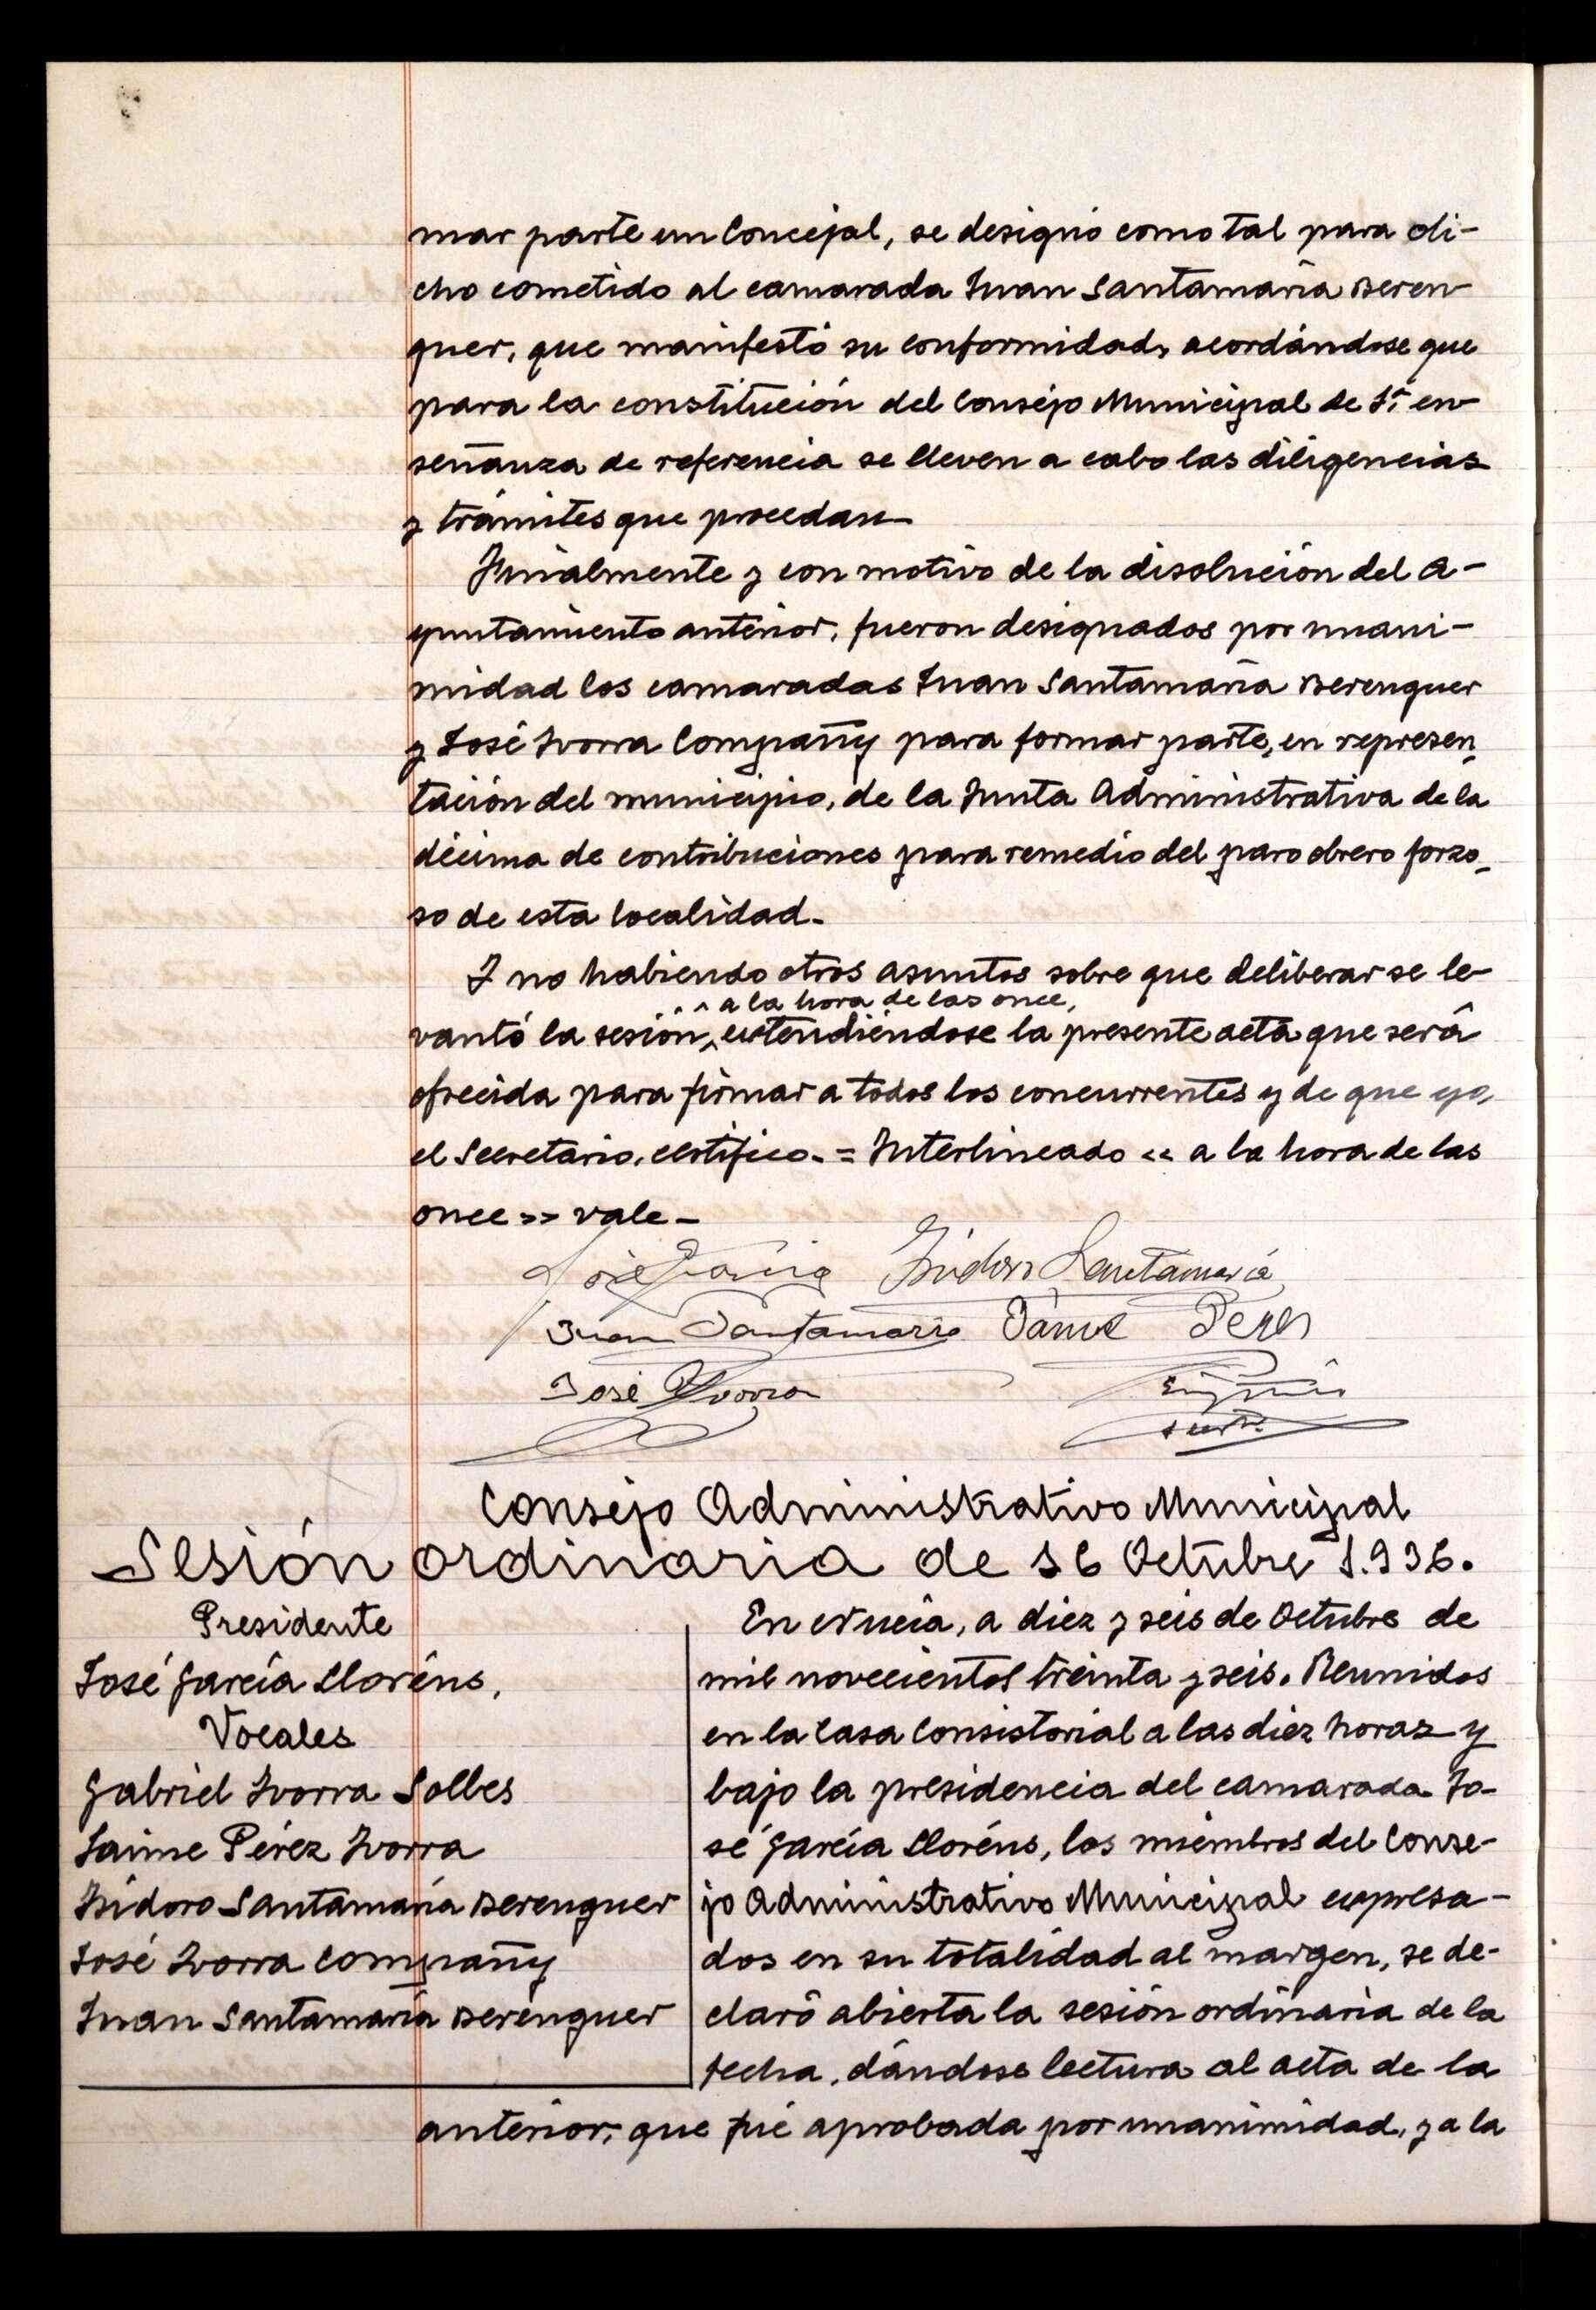 mar parte un Concejal, se designó como tal para di-
cho cometido al camarada Juan Santamaría Beren-
guer, que manifestó su conformidad, acordándose que
para la constitución del Consejo Municipal de 1ª en-
señanza de referencia se lleven a cabo las diligencias
y trámites que procedan—
Finalmente y con motivo de la disolución del A-
yuntamiento anterior, fueron designados por unani-
midad los camaradas Juan Santamaría Berenguer
y José Ivorra Compañy para formar parte, en represen-
tación del municipio, de la Junta Administrativa de la
décima de contribuciones para remedio del paro obrero forzo-
so de esta localidad.-
Y no habiendo otros asuntos sobre que deliberar se le-
a la hora de las once,
vantó la sesión, extendiéndose la presente acta que será
ofrecida para firmar a todos los concurrentes y de que yo,
el Secretario, certifico.- = Interlineado << a la hora de las
once >> vale -
José García Isidoro Santamaría
Juan Santamaria Jaime Perez
José Ivorra
Consejo Administrativo Municipal
Sesión ordinaria de 16 Octubre 1.936.
Presidente
José García Lloréns.
Vocales
Gabriel Ivorra Solbes
Jaime Pérez Ivorra
Isidoro Santamaría Berenguer
José Ivorra Compañy
Juan Santamaría Berenguer
En Nucía, a diez y seis de Octubre de
mil novecientos treinta y seis. Reunidos
en la Casa Consistorial a las diez horas y
bajo la presidencia del camarada Jo-
sé García Lloréns, los miembros del Conse-
jo Administrativo Municipal expresa-
dos en su totalidad al margen, se de-
claró abierta la sesión ordinaria de la
fecha, dándose lectura al acta de la
anterior, que fué aprobada por unanimidad, y a la